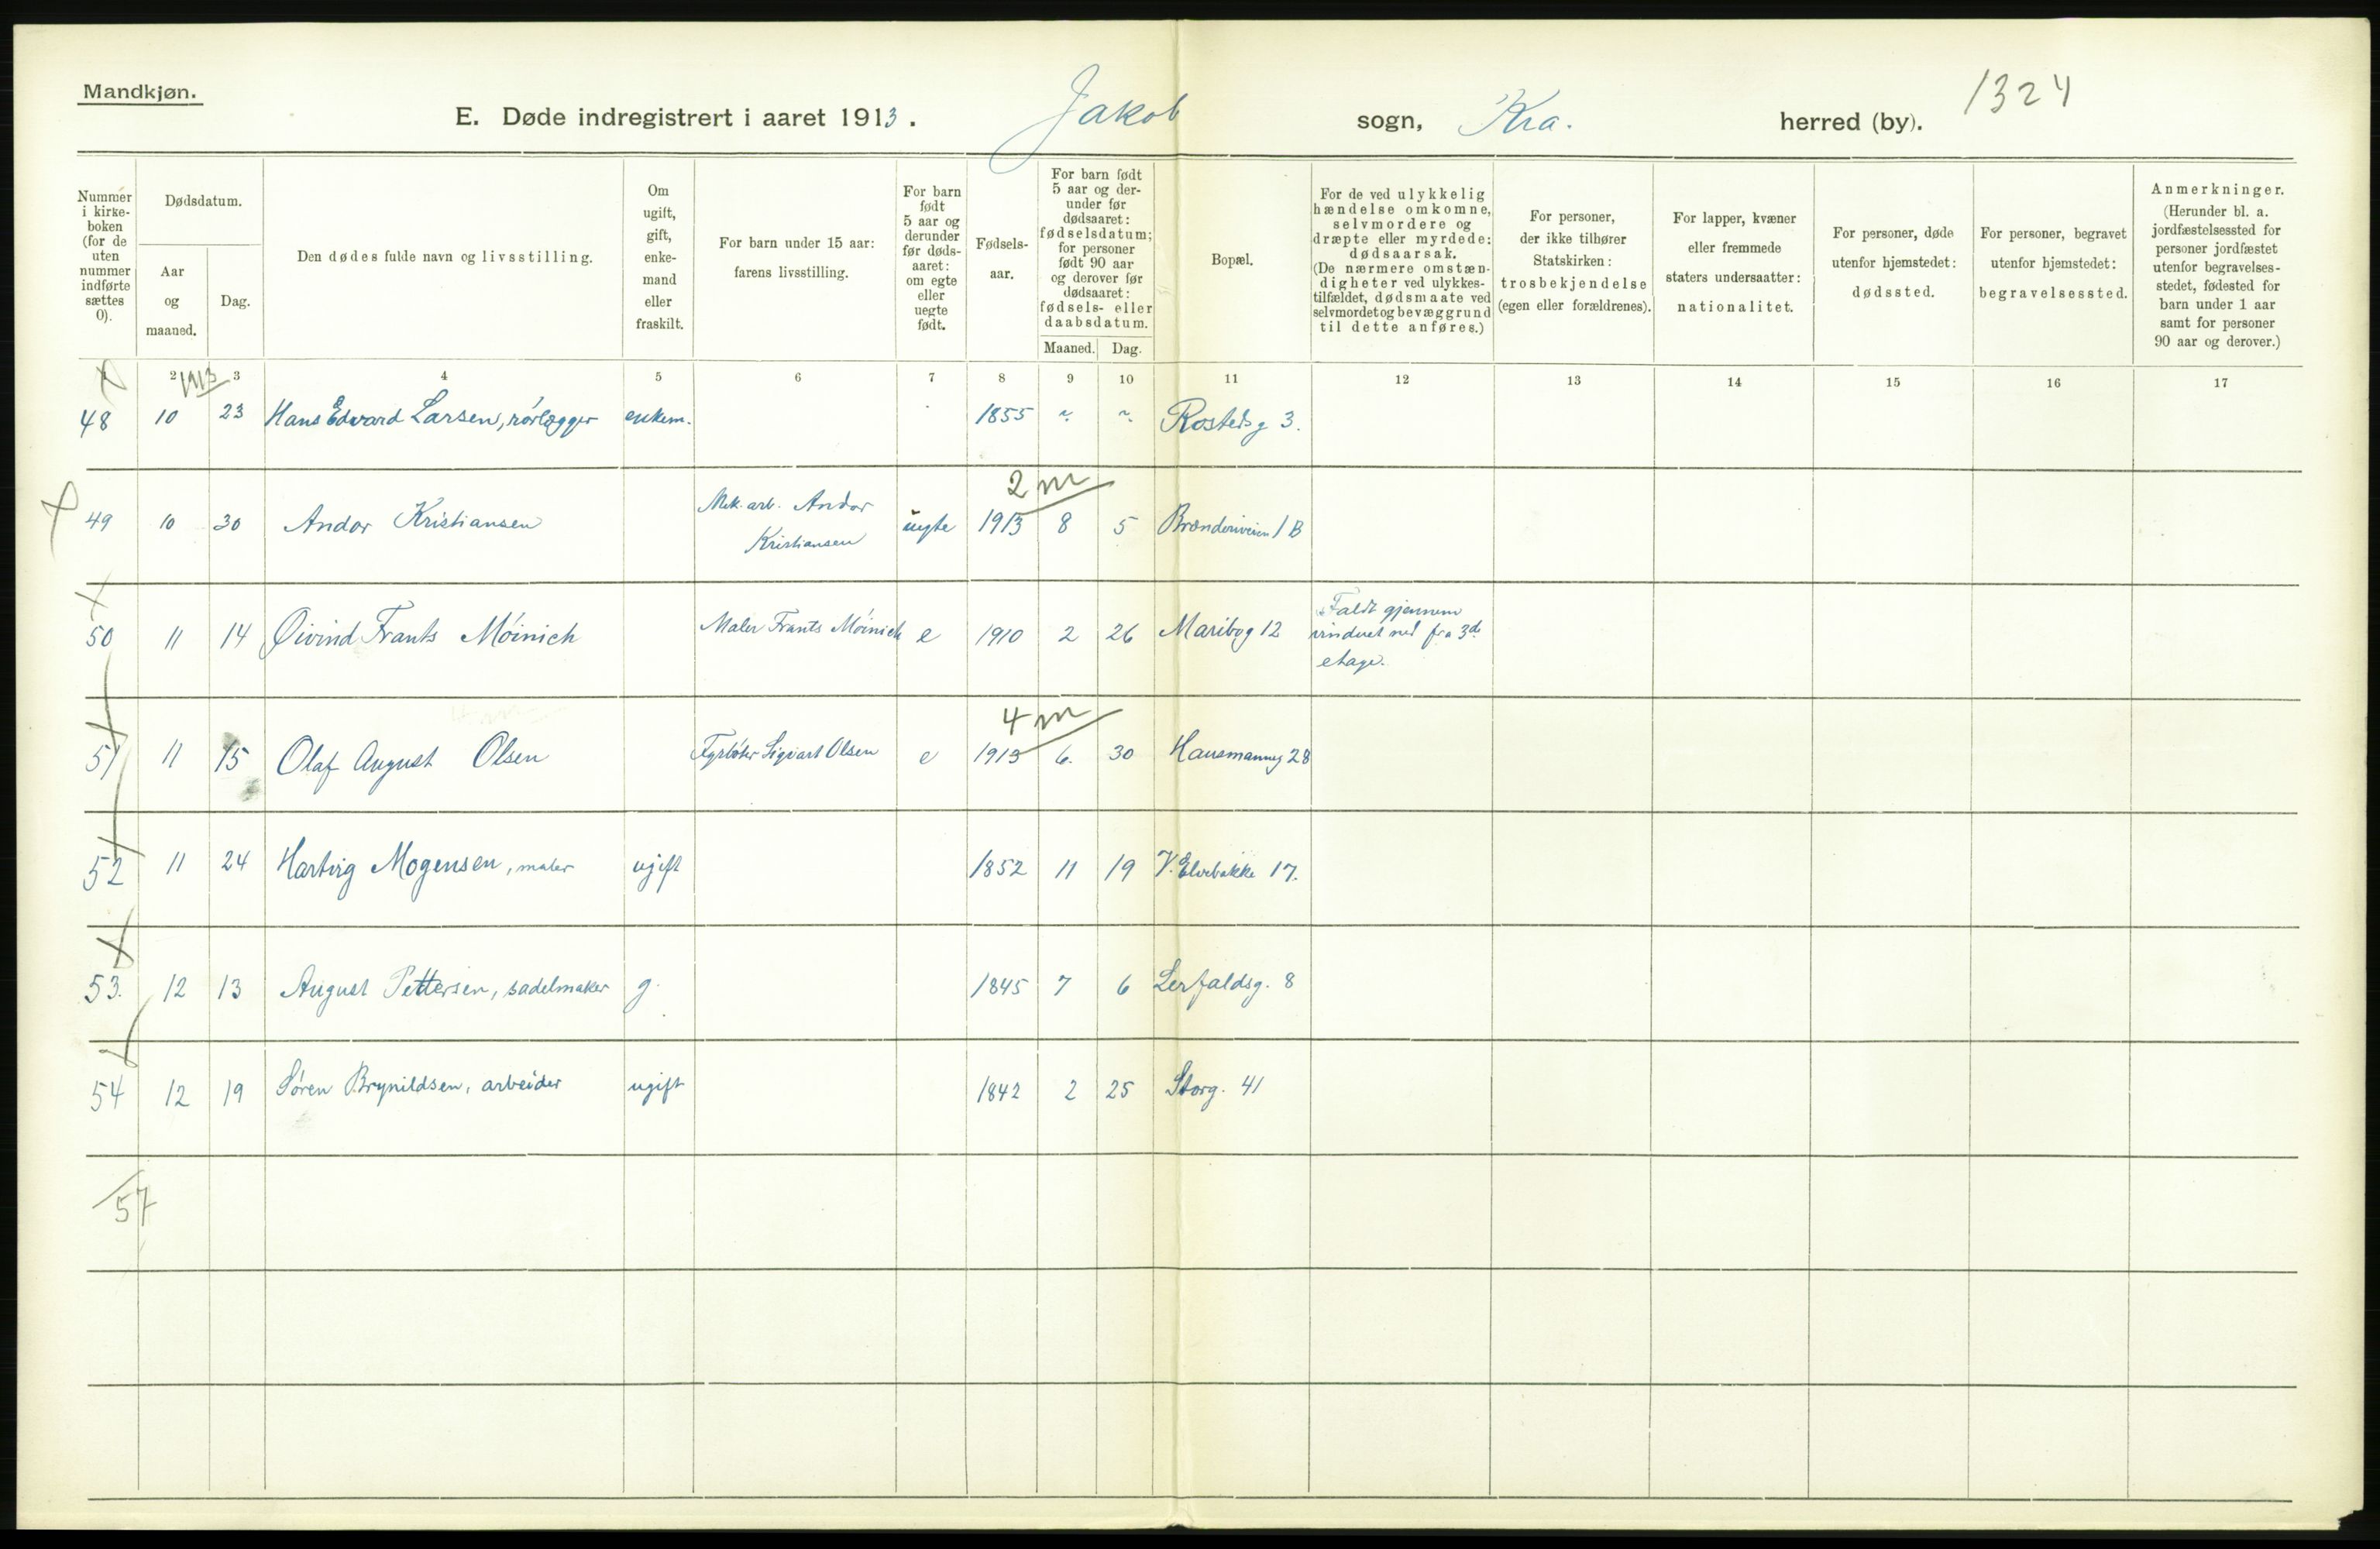 Mandkjøn.
E. Døde indregistrert i aaret 1913. Jakob sogn, Kra. herred (by).
1324
Nummer i kirke-boken (for de uten nummer indførte sættes 0).
Dødsdatum.
Aar og maaned.
Dag.
Den dødes fulde navn og livsstilling.
Om ugift, gift, enkemand eller fraskilt.
For barn under 15 aar: farens livsstilling.
For barn født 5 aar og derunder før dødsaaret: om egte eller uegte født.
Fødselsaar.
For barn født 5 aar og derunder før dødsaaret: fødselsdatum; for personer født 90 aar og derover før dødsaaret: fødsels- eller daabsdatum.
Maaned. Dag.
Bopæl.
For de ved ulykkelig hændelse omkomne, selvmordere og dræpte eller myrdede: dødsaarsak. (De nærmere omstændigheter ved ulykkestilfældet, dødsmaate ved selvmordet og bevæggrund til dette anføres.)
For personer, der ikke tilhører Statskirken: trosbekjendelse (egen eller forældrenes).
For lapper, kvæner eller fremmede staters undersaatter: nationalitet.
For personer, døde utenfor hjemstedet: dødssted.
For personer, begravet utenfor hjemstedet: begravelsessted.
Anmerkninger. (Herunder bl. a. jordfæstelsessted for personer jordfæstet utenfor begravelsesstedet, fødested for barn under 1 aar samt for personer 90 aar og derover.)
1 2 3 4 5 6 7 8 9 10 11 12 13 14 15 16 17
1913
48 10 23 Hans Edvard Larsen, rørlægger enkem. 1855 ~ ~ Rostedsg 3.
2 m
49 10 30 Andor Kristiansen Mek. arb. Andor Kristiansen uegte 1913 8 5 Brænderiveien 1 B
50 11 14 Øivind Frants Möinich Maler Frants Möinich e 1910 2 26 Maribog 12 Faldt gjennem vinduet ned fra 3de etage.
4 m
51 11 15 Olaf August Olsen Fyrbøter Sigvart Olsen e 1913 6. 30 Hausmannsg 28
52 11 24 Hartvig Mogensen, maler ugift 1852 11 19 V. Elvebakke 17.
53. 12 13 August Pettersen, sadelmaker g. 1845 7 6 Lerfaldsg. 8
54 12 19 Sören Brynildsen, arbeider ugift 1842 2 25 Storg. 41
57